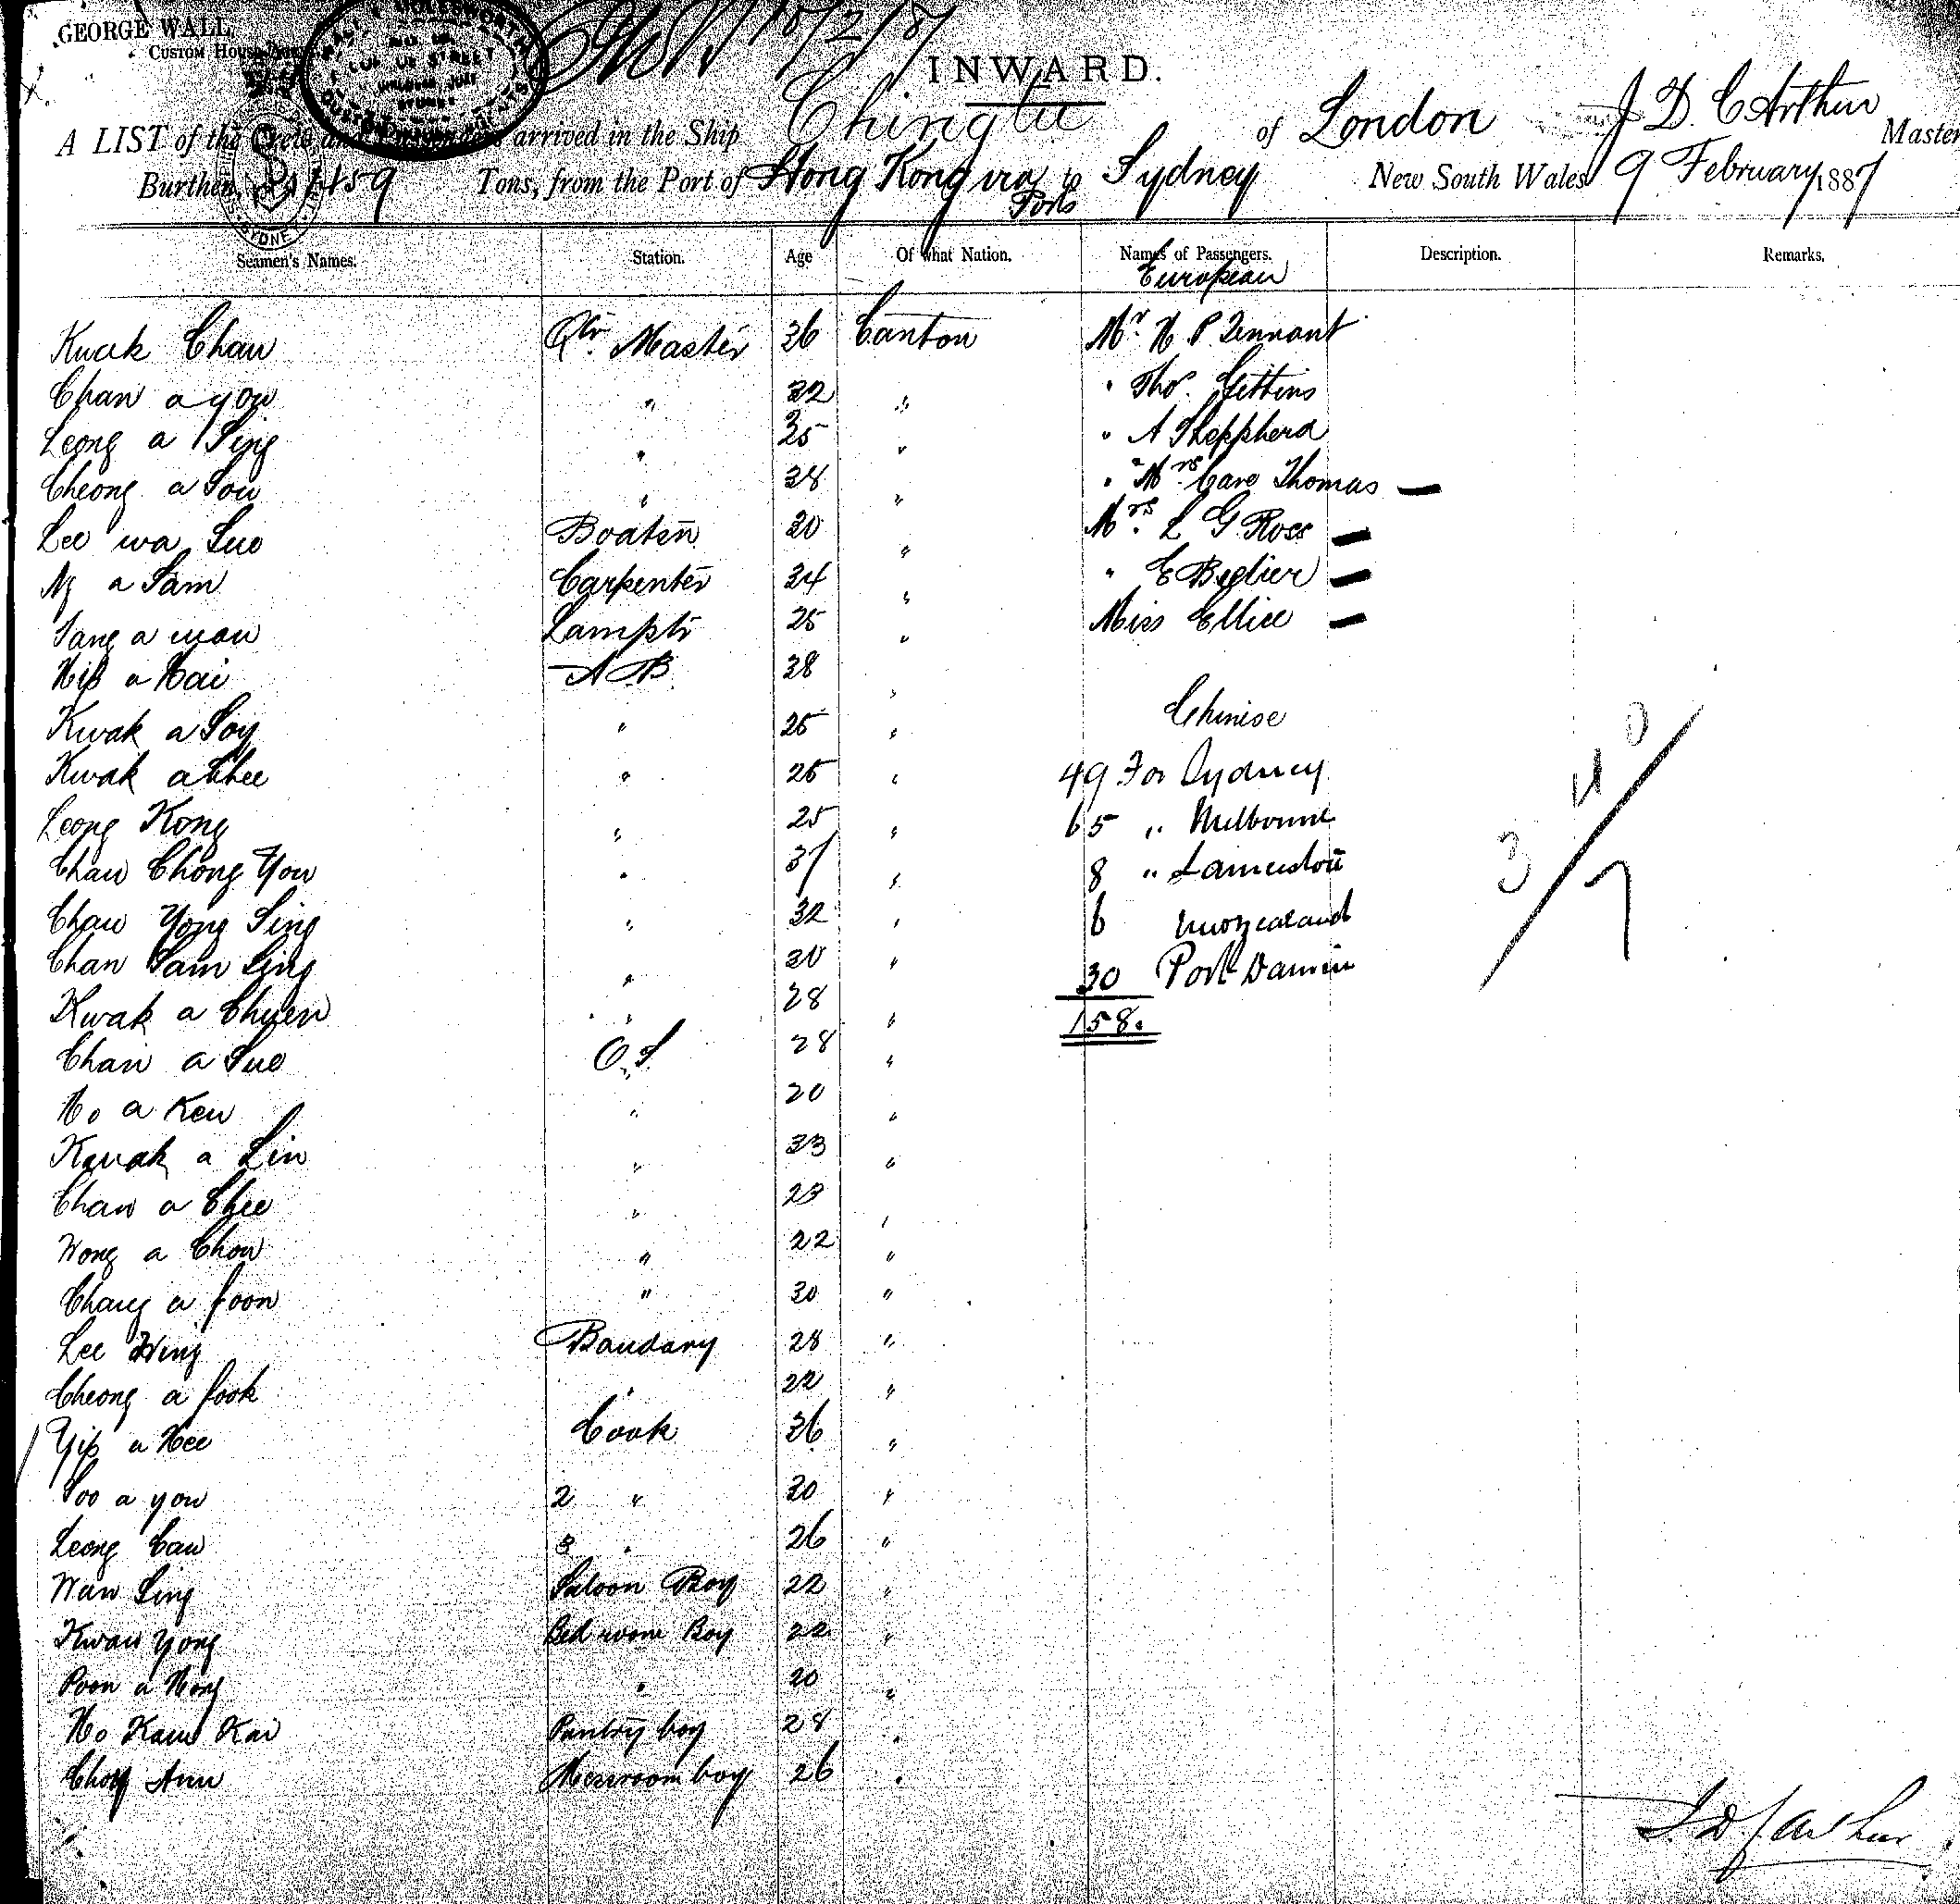 GEORGE WALL,
CUSTOM HOUSE
10/2/87
INWARD.
A LIST of the arrived in the Ship Chingtu of London J D. C Arthur Master
Burthen, 1459 Tons, from the Port of Hong Kong via Ports to Sydney New South Wales 9 February 1887
Seamen's Names. Station. Age Of what Nation. Names of Passengers. Description. Remarks.
European
Kwak Chau Qtr. Master 36 Canton Mr. H P Tennant
Chan a you " 32 " " Thos. Gittins
Leong a Sing " 25 " " A Sheppherd
Cheong a Sou " 38 " " Mrs. Cave Thomas —
Lee wa Suo Boatsn 30 " Mrs. L G Ross —
Ng a Sam Carpenter 34 " " E Beglier —
Tang a wau Lamptr 25 " Miss Ellice —
Hip a Hai A B 38 "
Chinese
Kwak a Soy " 25 "
Kwak a Chee " 25 " 49 For Sydney
Leong Kong " 25 " 65 " Melbourne
Chau Chong You " 37 " 8 " Launceston
Chau Yong Sing " 32 " 6 Newzealand
Chan Sam Sing " 30 " 30 Port Darwin
Kwak a Chuen " 28 " 158.
Chan a Suo O.S. 28 "
Ho a Keu " 20 "
Kwak a Lin " 33 "
Chan a Chee " 23 "
Wong a Chow " 22 "
Chang a foon " 30 "
Lee Wing Baudary 28 "
Cheong a fook " 22 "
Yip a Hee Cook 36 "
Soo a you 2 " 30 "
Leong Cau 3 " 26 "
Wan Sing Saloon Boy 22 "
Kwan Yong Bed room Boy 22 "
Poon a Hong " 20 "
Ho Kam Kai Pantry boy 28 "
Choy Ann Messroom boy 26 "
J. D. C Arthur